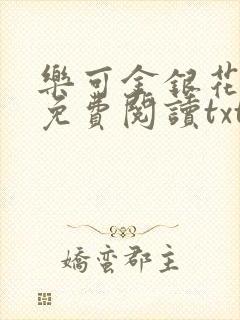 樂可金銀花
免費閱讀txt
嬌蠻郡主